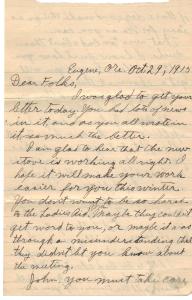 Eugene, Ore. Oct 29, 1915
Dear Folks,
I was glad to get your
letter today. You had lots of news
in it and as you all wrote in
it so much the better.
I am glad to hear that the new
stove is working all right. I
hope it will make your work
easier for you this winter.
You don't want to be so hard
on the Ladies Aid. Maybe they couldn't
get word to you, or maybe it was
through a misunderstanding that
they didn't let you know about
the meeting.
John, you must take care